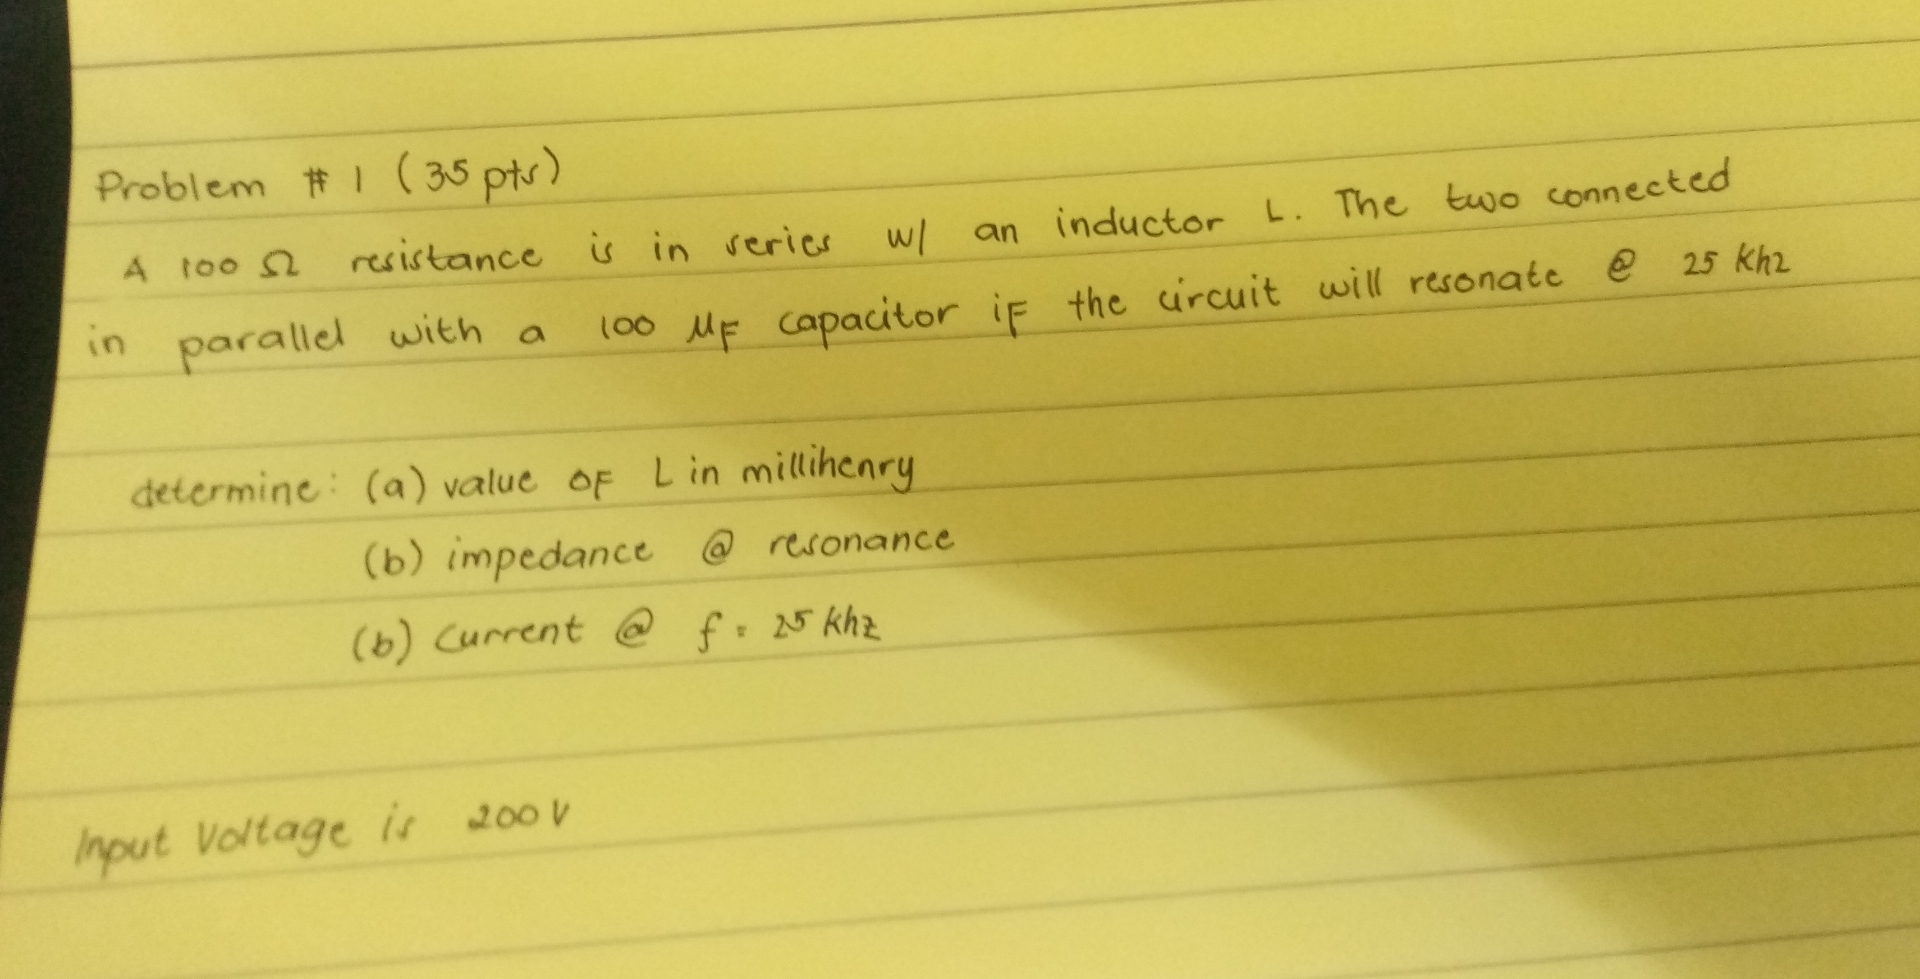 Problem # 1 (35 pts)
A 100 Ω resistance is in series w/ an inductor L. The two connected
in parallel with a 100 μF capacitor if the circuit will resonate @ 25 Khz
determine: (a) value of L in millihenry
(b) impedance @ resonance
(b) Current @ f = 25 khz
Input Voltage is 200 V